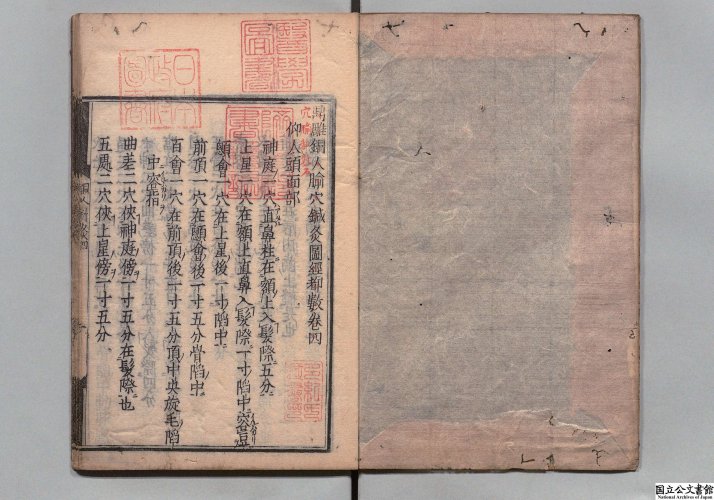 鼎雕銅人腧穴鍼灸圖經 卷四
仰人頭面部
神庭一穴直鼻柱在額上入髮際五分
上星一穴在額上直鼻入髮際一寸陷中容豆
顖會一穴在上星後一寸陷中
前頂一穴在顖會後一寸五分骨陷中
百會一穴在前頂後一寸五分頂中央旋毛陷
中容指
曲差二穴俠神庭傍一寸五分在髮際也
五處二穴俠上星傍一寸五分
日本
政府
圖書
国立公文書館
National Archives of Japan